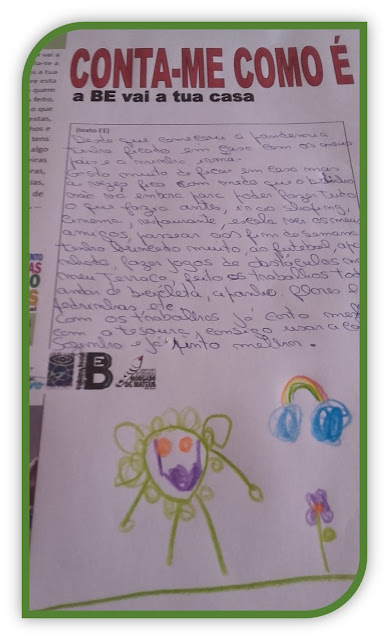 CONTA-ME COMO É
a BE vai a tua casa
(texto EE)
Desde que começou a pandemia
tenho ficado em casa com os meus
pais e a minha irmã.
Gosto muito de ficar em casa mas
às vezes fico com medo que o bichinho
não vá embora para poder fazer tudo
o que fazia antes, ir ao shoping,
cinema, restaurante, escola ver os meus
amigos, passear aos fins de semana
tenho brincado muito, ao futebol, apa
nhada, fazer jogos de obstáculos no
meu Terraço, feito os trabalhos tod
andar de bicicleta, apanho flores e
pedrinhas, etc.
Com os trabalhos já corto mel
com a tesoura, consigo usar a co
sozinho e já pinto melhor.
BE
MORGADO
DE MATEUS